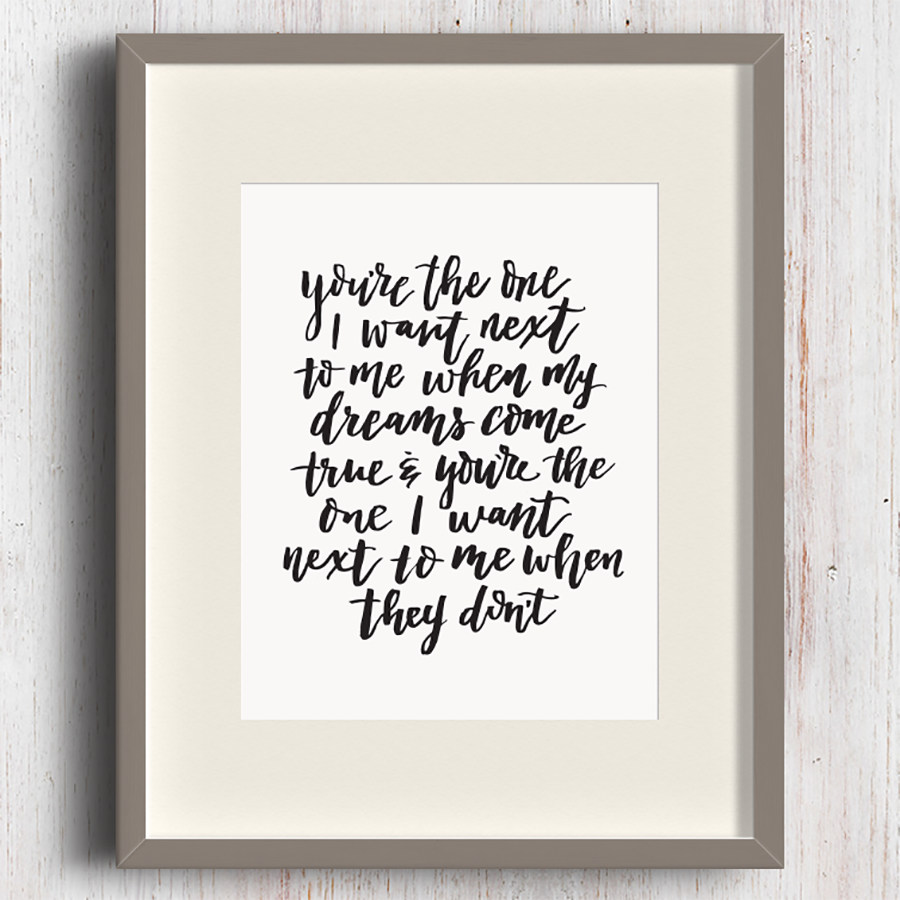 you're the one
I want next
to me when my
dreams come
true & you're the
one I want
next to me when
they don't